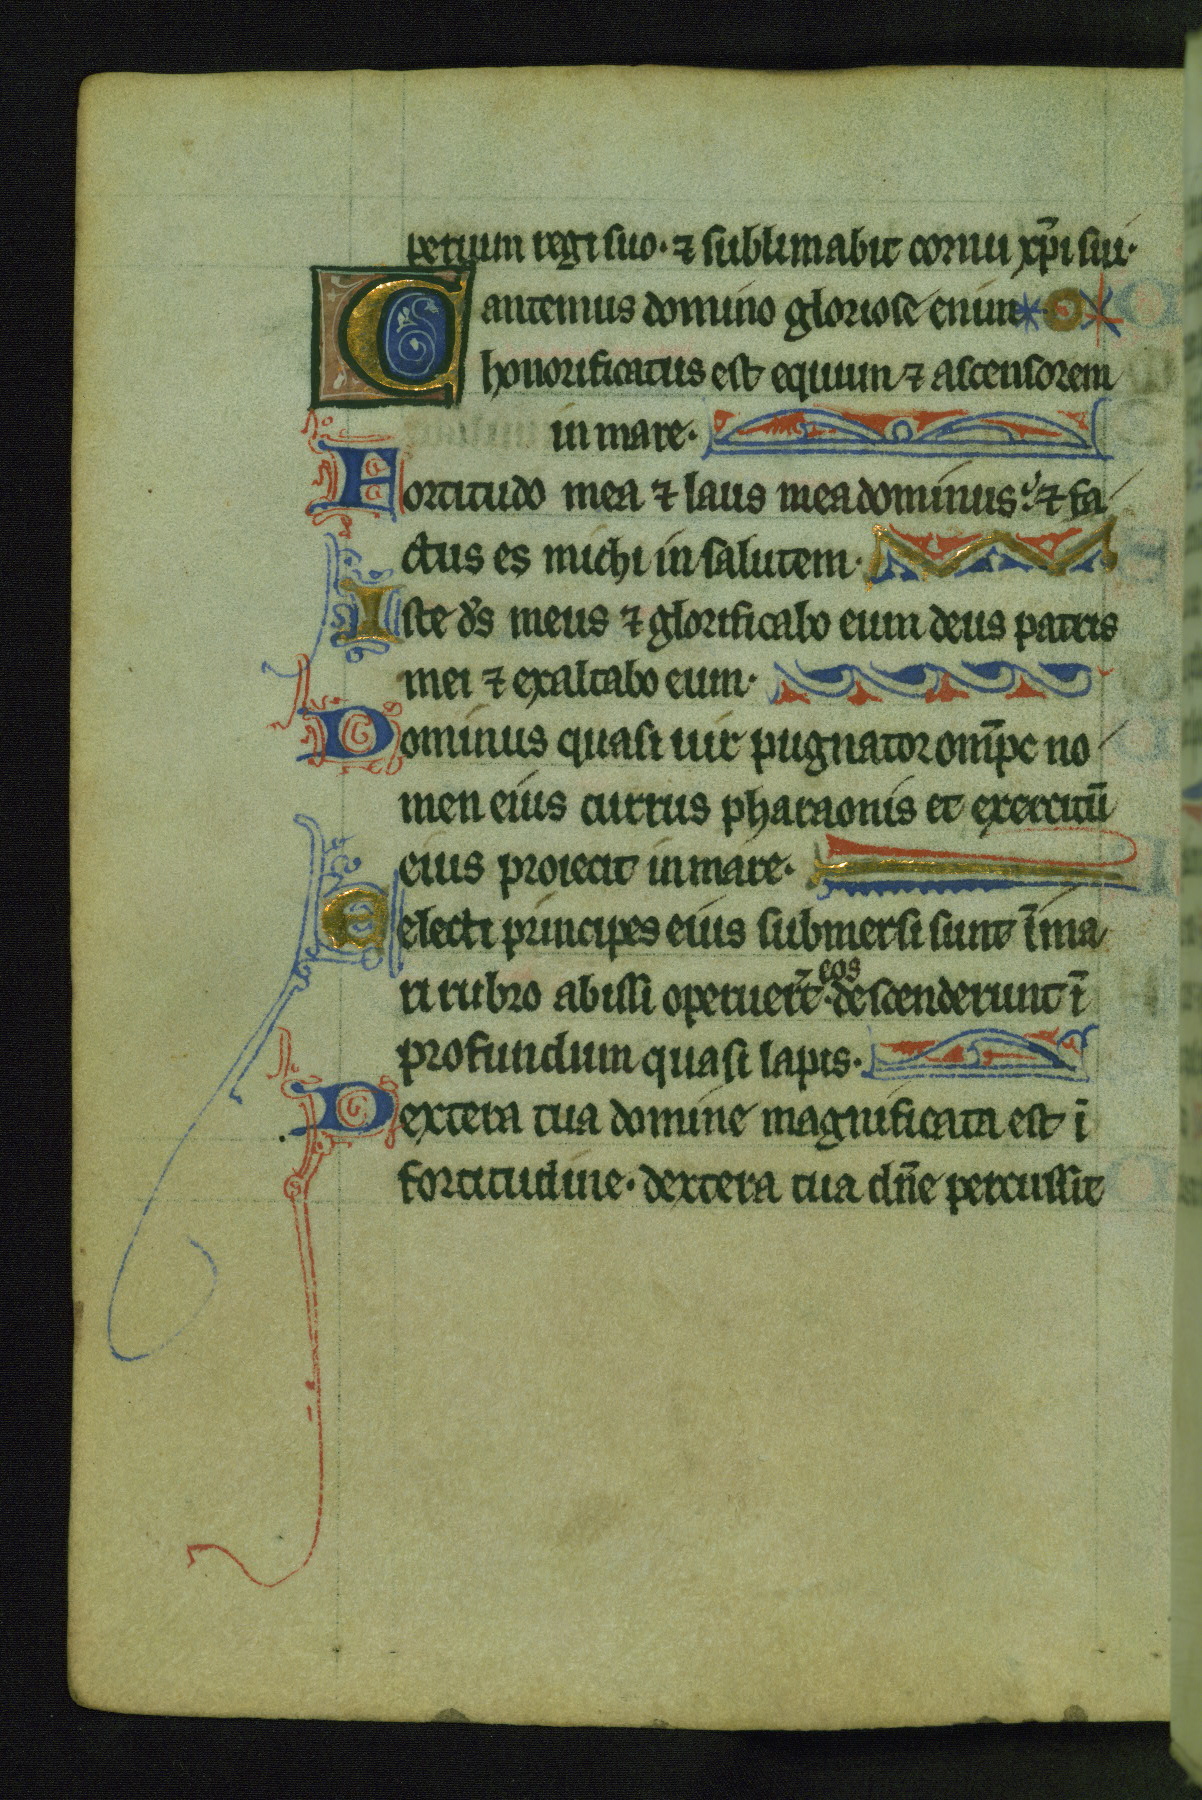 perium regi suo· ⁊ sublimabit cornu xp̄i sui·
Cantemus domino gloriose enim
honorificatus est equum ⁊ ascensorem
in mare·
Fortitudo mea ⁊ laus mea dominus: ⁊ fa
ctus es michi in salutem·
Iste ds̄ meus ⁊ glorificabo eum deus patris
mei ⁊ exaltabo eum·
Dominus quasi uir pugnator om̄pc no
men eius currus pharaonis et exercitū
eius proiecit in mare·
Eelecti principes eius submersi sunt ī ma
ri rubro abissi operuer̄t eos· descenderunt ī
profundum quasi lapis·
Dextera tua domine magnificata est ī
fortitudine· dextera tua dn̄e percussit